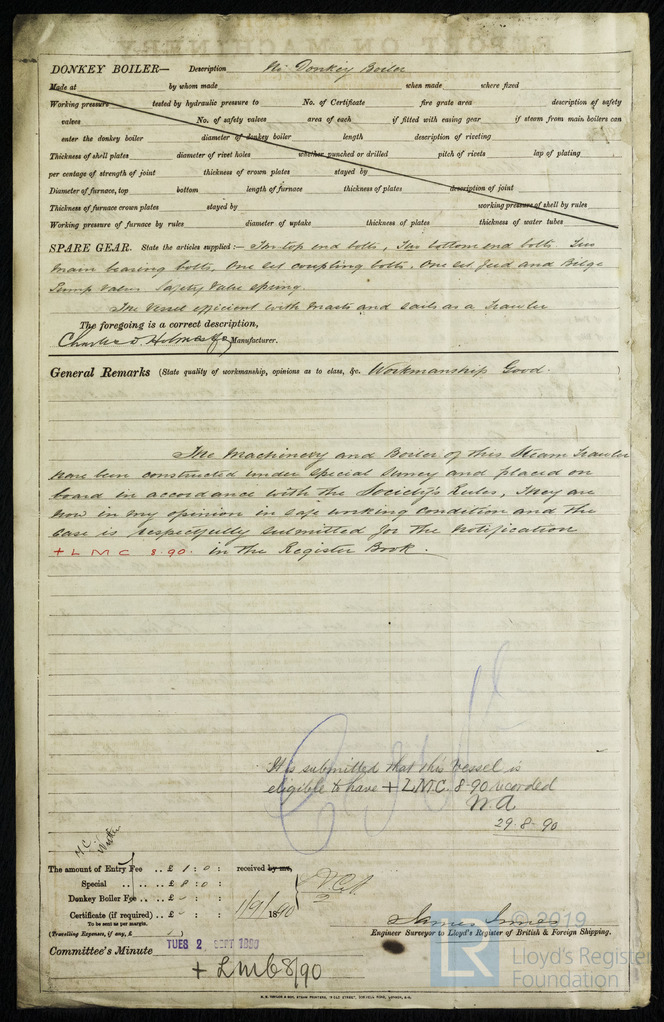 DONKEY BOILER— Description No Donkey Boiler
Made at by whom made when made where fixed
Working pressure tested by hydraulic pressure to No. of Certificate fire grate area description of safety
valves No. of safety valves area of each if fitted with easing gear if steam from main boilers can
enter the donkey boiler diameter of donkey boiler length description of riveting
Thickness of shell plates diameter of rivet holes whether punched or drilled pitch of rivets lap of plating
per centage of strength of joint thickness of crown plates stayed by
Diameter of furnace, top bottom length of furnace thickness of plates description of joint
Thickness of furnace crown plates stayed by working pressure of shell by rules
Working pressure of furnace by rules diameter of uptake thickness of plates thickness of water tubes
SPARE GEAR. State the articles supplied:— Two top end bolts, Two bottom end bolts Two
main bearing bolts, One set coupling bolts. One set feed and Bilge
Pump Valves Safety Valve Spring
The Vessel efficient with masts and sails as a Trawler
The foregoing is a correct description,
Charles D. Holmes & Co Manufacturer.
General Remarks (State quality of workmanship, opinions as to class, &c. Workmanship Good.
The Machinery and Boiler of this Steam Trawler
have been constructed under Special Survey and placed on
board in accordance with the Society's Rules, They are
now in my opinion in safe working condition and the
case is respectfully submitted for the notification
+ L M C 8.90. in the Register Book.
It is submitted that this vessel is
eligible to have + L.M.C. 8-90 recorded
29.8.90
The amount of Entry Fee .. £ 1 : 0 : received by me,
Special .. .. £ 8 : 0 :
Donkey Boiler Fee .. £ - : :
Certificate (if required) .. £ - : : 1/9/1890
To be sent as per margin.
(Travelling Expenses, if any, £ )
James Innes
Engineer Surveyor to Lloyd's Register of British & Foreign Shipping.
Committee's Minute TUES 2 SEPT 1890
+ LMC 8/90
© 2019
LR
Lloyd's Register
Foundation